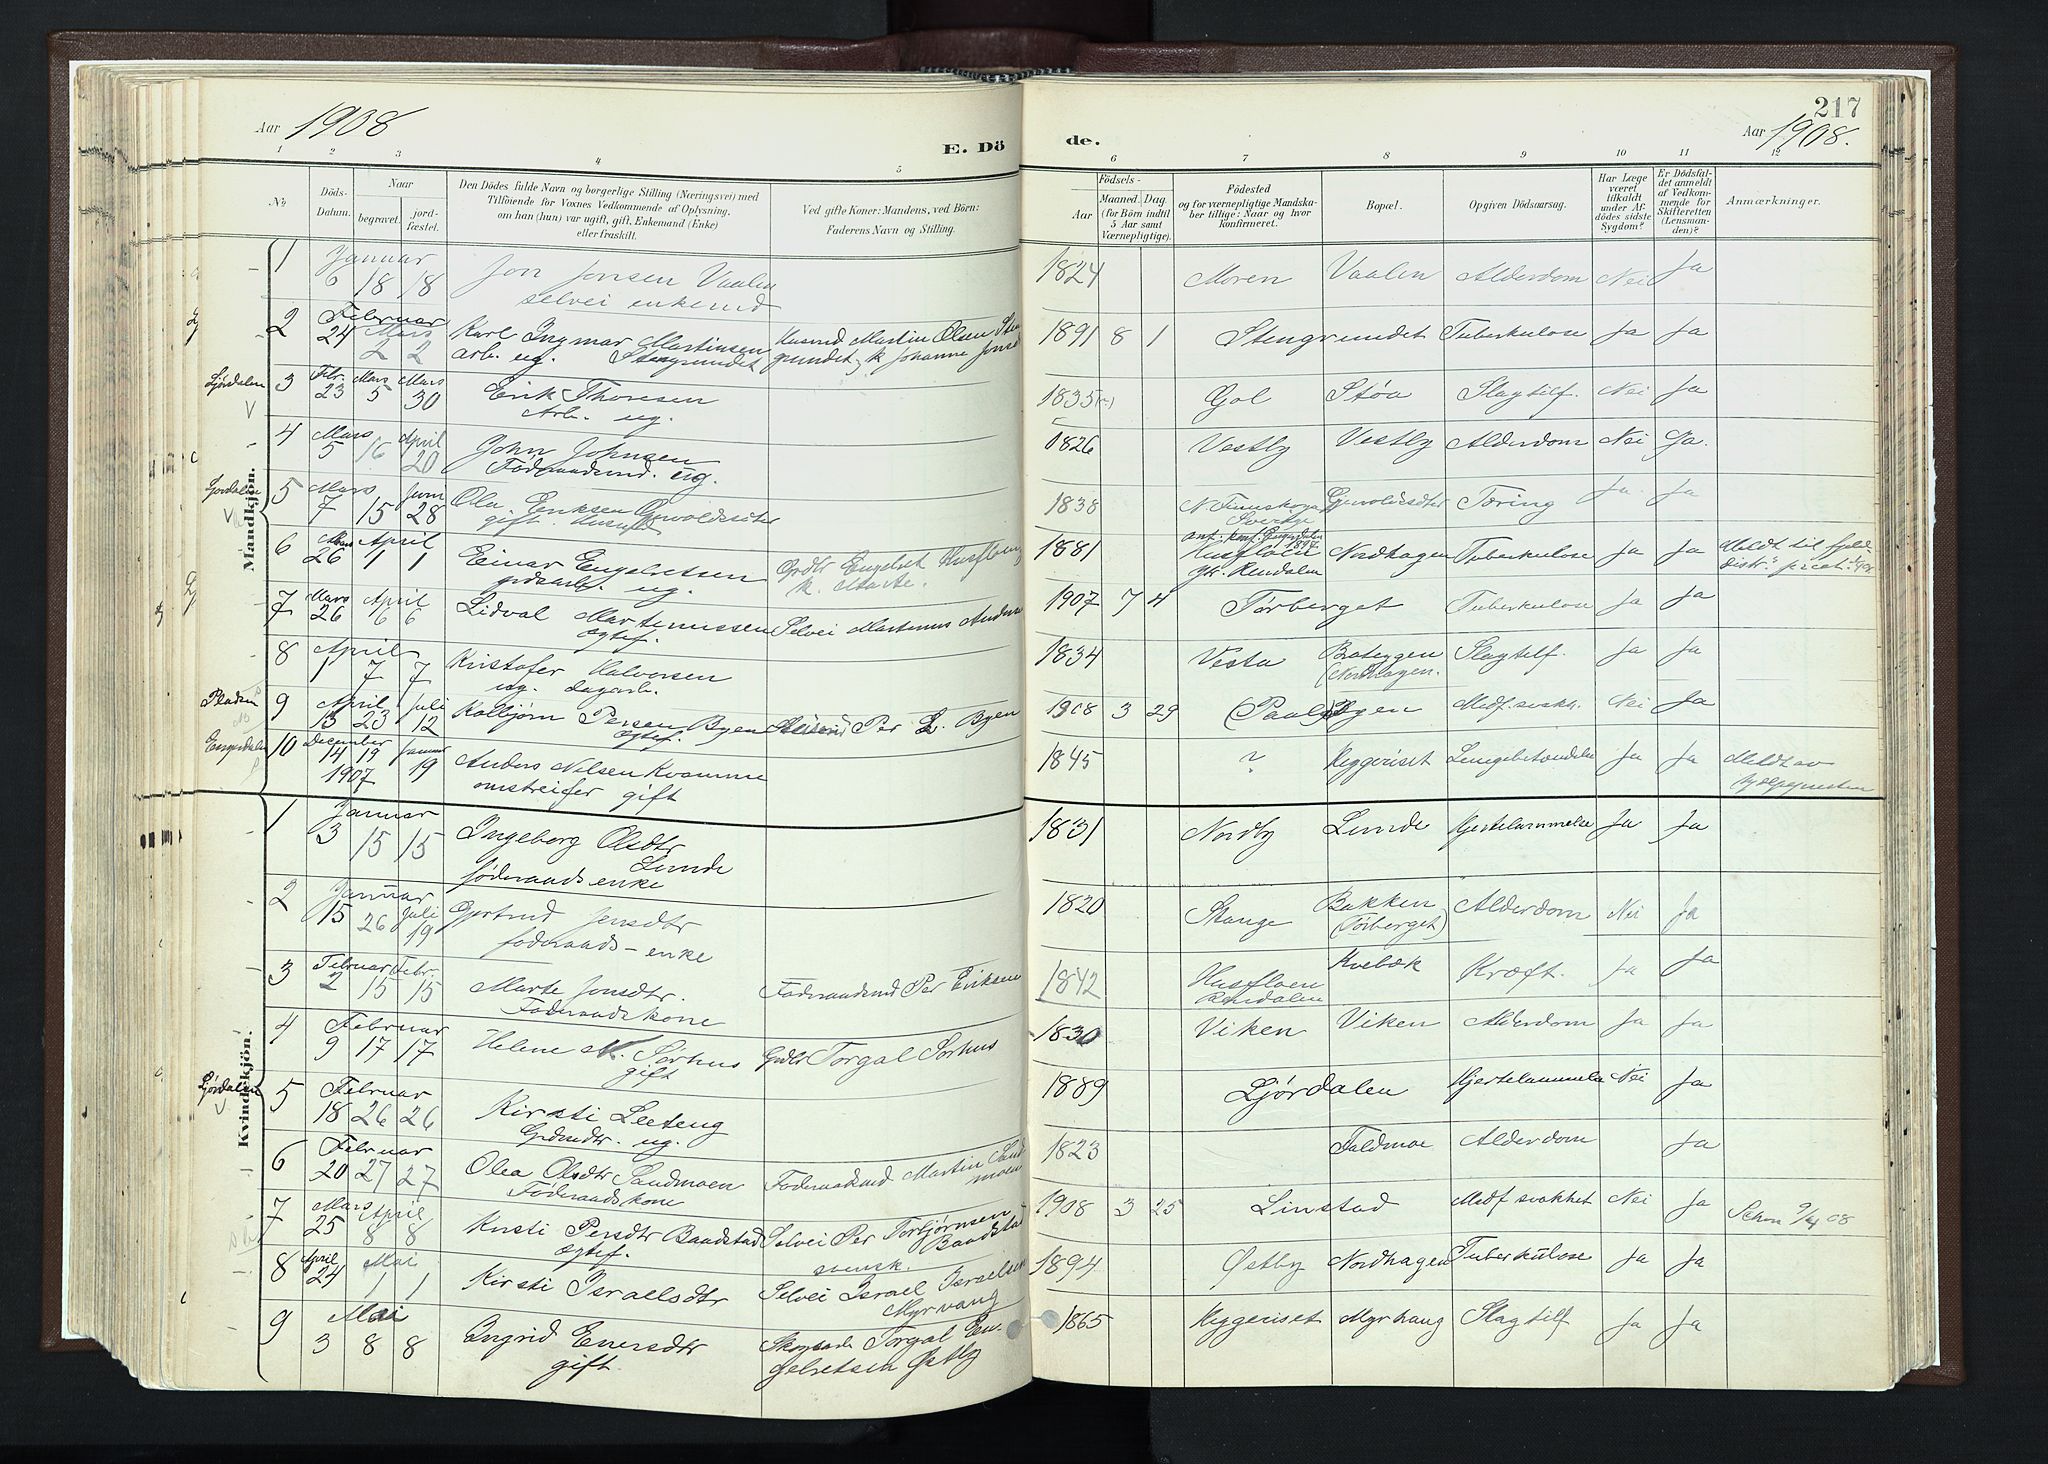 Aar 1908
E. Dö
1 2 3 4 5
No
Döds-Datum.
Naar
begravet.
jord-fæstet.
Den Dödes fulde Navn og borgerlige Stilling (Næringsvei) med
Tilföiende for Voxnes Vedkommende af Oplysning,
om han (hun) var ugift, gift, Enkemand (Enke)
eller fraskilt.
Ved gifte Koner: Mandens, ved Börn:
Faderens Navn og Stilling.
Mandkjön.
1 Januar 6 18 18 Jon Jonsen Vaalen
selvei enkemd
2 Februar 24 Mars 2 2 Karl Ingmar Martinsen Husmd Martin Olsen Sten
arb. ug. Stengrundet grundet, k Johanne
Ljørdalen
3 Febr. 23 Mars 5 Mars 30 Erik Thoresen
Arb. ug.
4 Mars 5 16 April 20 John Johnsen
Föderaadsmd. ug.
Ljørdalen
5 Mars 7 15 Juni 28 Ola Eriksen
gift.
6 Mars 26 April 1 1 Einar Engebretsen Grdbr Engebret Husfloen
ug. k. Marte.
7 Mars 26 April 6 6 Lidval Martinussen Selvei Martinus
ægtef.
8 April 1 7 7 Kristofer Halvorsen
ug. dagarb.
Pladsen
9 April 13 23 Juli 12 Kolbjørn Persen Byen Per L. Byen
ægtef.
Engerdalen
10 December 14 19 Januar 19 Anders Nilsen Kvamme
1907 omstreifer gift
Kvindekjön.
1 Januar 3 15 15 Ingeborg Olsdtr
Lunde
föderaadsenke
2 Januar 15 26 Juli 19 Gjertrud Jensdtr
föderaads-enke
3 Februar 2 15 Febr. 15 Marte Jonsdtr. Föderaadsmd Per Eriksen
Föderaadskone
4 Februar 9 17 17 Helene M. Sørhus Grdbr Torgal Sørhus
gift
Ljørdalen
5 Februar 18 26 26 Kirsti Leeteng
ug.
6 Februar 20 27 27 Olea Olsdtr Sandmoen Föderaadsmd Martin Sand
Föderaadskone moen
7 Mars 25 April 8 8 Kirsti Persdtr Baadstad Selvei Per Torbjørnsen
ægtef. Baadstad
svensk.
8 April 24 Mai 1 1 Kirsti Israelsdtr Selvei Israel Israelsen
Myrvang
9 Mai 3 8 8 Ingrid Enersdtr Torgal En-
gift. gebretsen Østby
217
de.
Aar 1908.
6 7 8 9 10 11 12
Födsels-
Aar
Maaned. Dag.
(for Börn indtil
5 Aar samt
Værnepligtige).
Födested
og for værnepligtige Mandska-
ber tillige: Naar og hvor
konfirmeret.
Bopæl.
Opgiven Dödsaarsag.
Har Læge
været
tilkaldt
under Af-
dödes sidste
Sygdom?
Er Dödsfal-
det anmeldt
af Vedkom-
mende for
Skifteretten
(Lensman-
den)?
Anmærkninger.
1824 Moren Vaalen Alderdom Nei Ja
1891 8 1 Stengrundet Tuberkulose Ja Ja
1835 Gol Støa Slagtilf. Nei Ja
1826 Vestby Vestby Alderdom Nei Ja.
1838 N. Finnskoga Tæring Ja Ja
Sverige
1881 Husfloen Nordhagen Tuberkulose Ja Ja Meldt til
Rendalen
1907 7 4 Tørberget Tuberkulose Ja Ja
1834 Vesta Slagtilf. Ja Ja
(Nordhagen.
1908 3 29 Byen Medf. svakh. Nei Ja
1845 ? Heggeriset Lungebetændelse Ja Ja Meldt av
hjelpepresten
1831 Nordby Lunde Hjertelammelse Ja Ja
1820 Stange Bakken Alderdom Nei Ja
(Tørberget)
1842 Husfloen Kvebæk Kræft. Ja Ja
Rendalen
1830 Viken Viken Alderdom Ja Ja
1889 Ljørdalen Hjertelammelse Nei Ja
1823 Faldmoe Alderdom Ja
1908 3 25 Linstad Medf svakhet Nei Ja 9/4 08
1894 Østby Nordhagen Tuberkulose Ja Ja
1865 Heggeriset Myrhaug Slagtilf Ja Ja